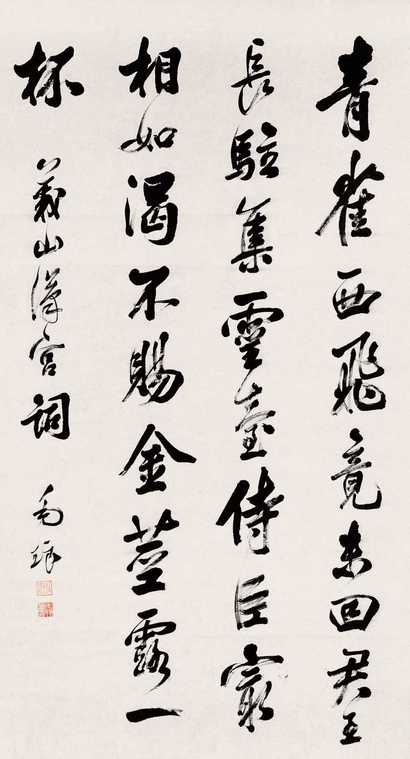 青雀西飛竟未回君王
長駐集靈臺侍臣最
相如渴不賜金莖露一
杯 義山漢宮詞